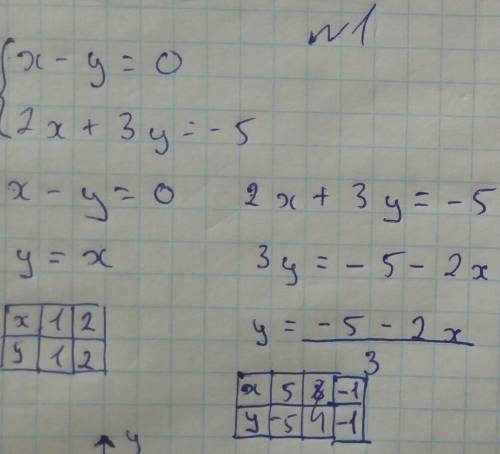 №1
{ x - y = 0
2x + 3y = -5
x - y = 0
y = x
x 1 2
y 1 2
2x + 3y = -5
3y = -5 - 2x
y = (-5 - 2x)/3
x 5 -1
y -5 -1
y